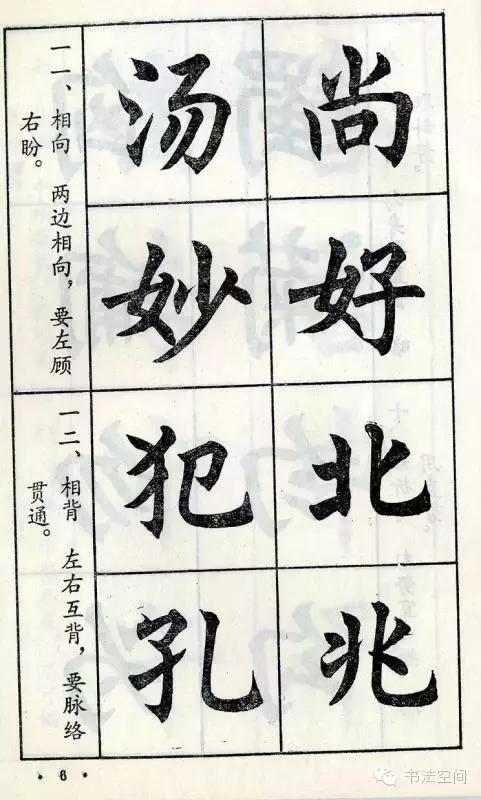 尚好
汤妙
一一、相向 两边相向，要左顾
右盼。
北兆
犯孔
一二、相背 左右互背，要脉络
贯通。
·6·
书法空间